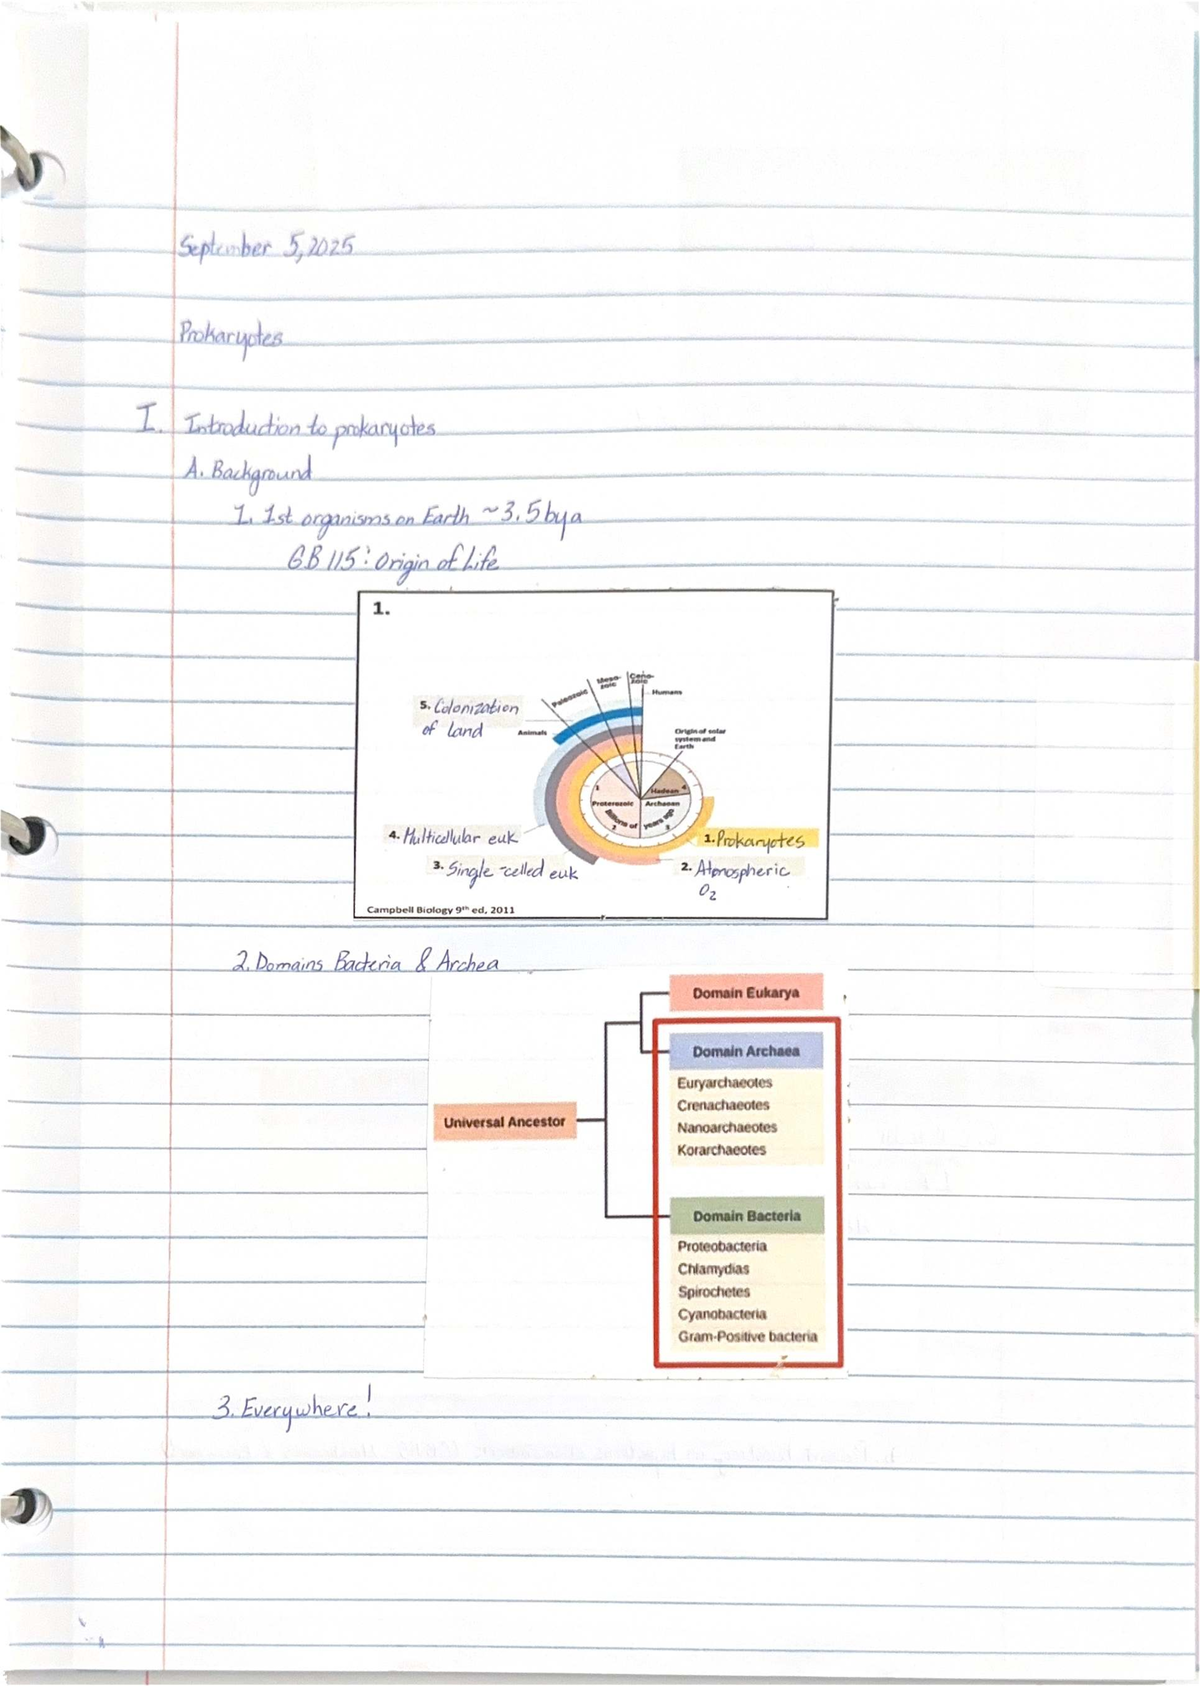 September 5, 2025
Prokaryotes
I. Introduction to prokaryotes
A. Background
1. 1st organisms on Earth ~3.5 bya
GB 115: Origin of Life
1.
Paleozoic
Meso-
zoic
Ceno-
zoic
Humans
5. Colonization
of land
Animals
Origin of solar
system and
Earth
Hadean
4
1
Proterozoic
Archaean
Billions of years ago
2
3
4. Multicellular euk
1. Prokaryotes
3. Single-celled euk
2. Atmospheric
O2
Campbell Biology 9th ed, 2011
2. Domains Bacteria & Archea
Domain Eukarya
Domain Archaea
Euryarchaeotes
Crenachaeotes
Nanoarchaeotes
Korarchaeotes
Universal Ancestor
Domain Bacteria
Proteobacteria
Chlamydias
Spirochetes
Cyanobacteria
Gram-Positive bacteria
3. Everywhere!